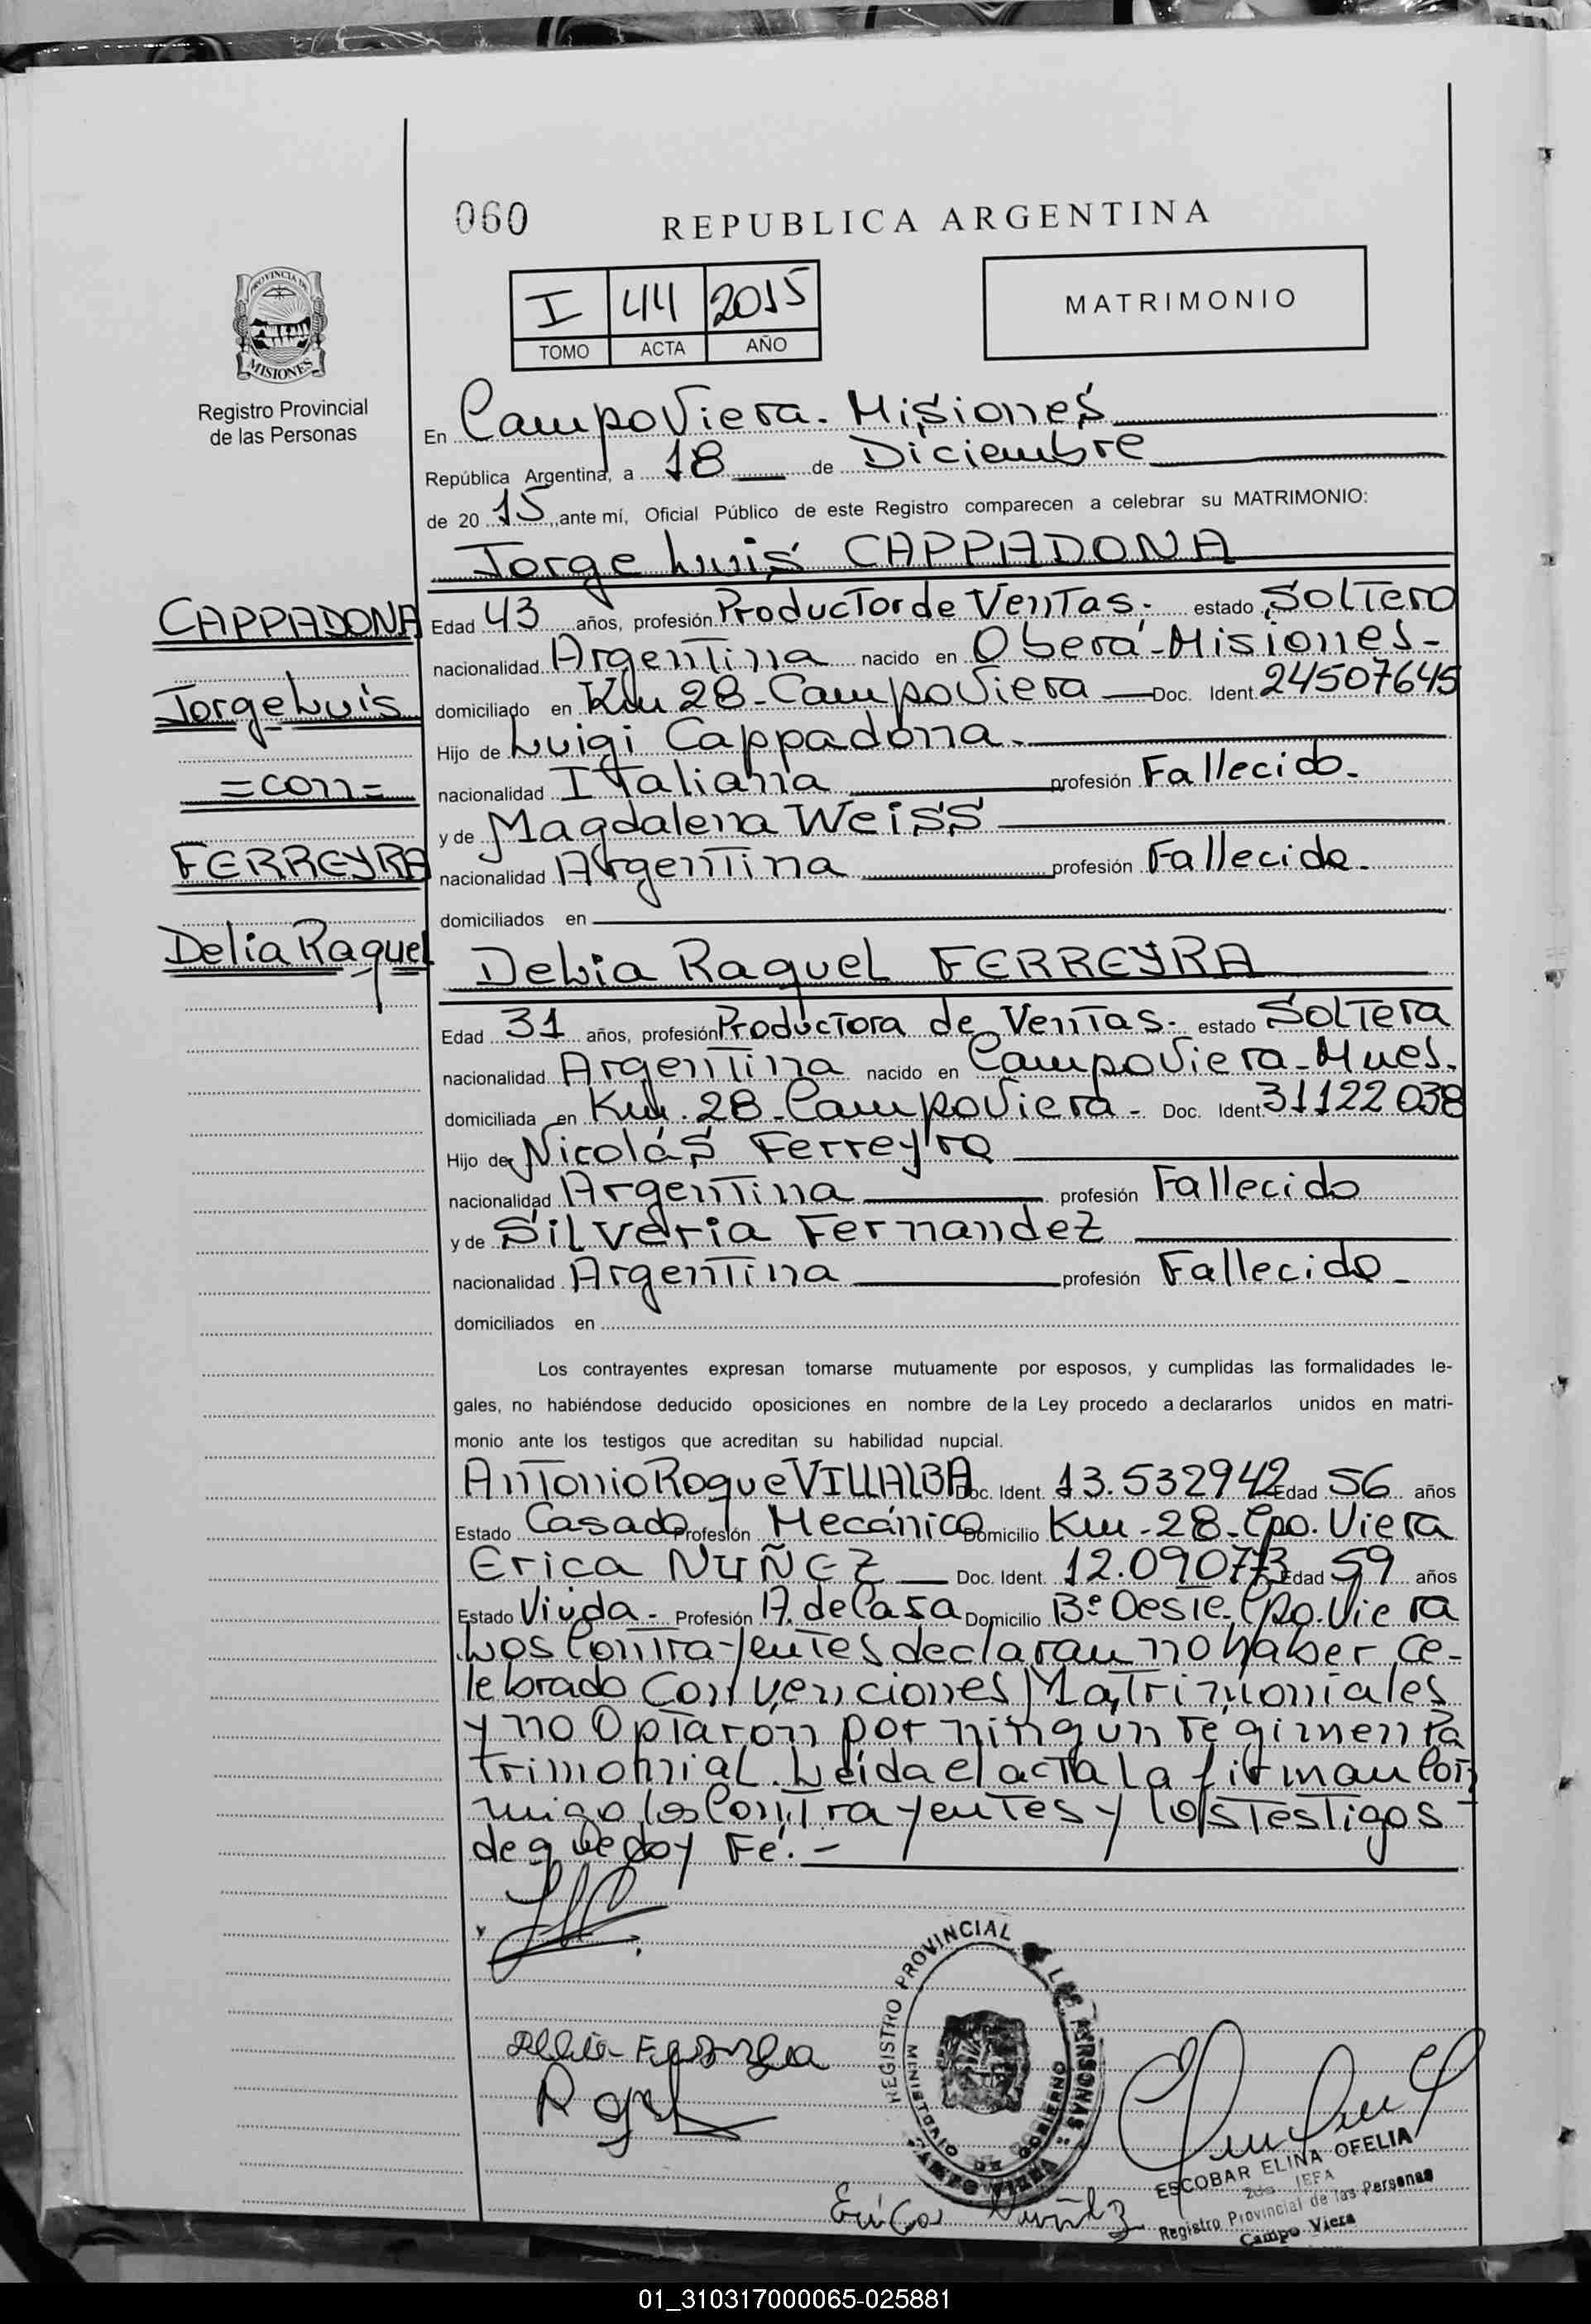 060
REPUBLICA ARGENTINA
I 44 2015
TOMO ACTA AÑO
MATRIMONIO
PROVINCIA DE
MISIONES
Registro Provincial
de las Personas
En Campo Viera. Misiones
República Argentina, a 18 de Diciembre
de 2015, ante mí, Oficial Público de este Registro comparecen a celebrar su MATRIMONIO:
Jorge Luis CAPPADONA
CAPPADONA
Jorge Luis
=con=
FERREYRA
Delia Raquel
Edad 43 años, profesión Productor de Ventas. estado Soltero
nacionalidad Argentina nacido en Oberá-Misiones-
domiciliado en Km 28-Campo Viera - Doc. Ident. 24507645
Hijo de Luigi Cappadona.
nacionalidad Italiana profesión Fallecido.
y de Magdalena Weiss
nacionalidad Argentina profesión Fallecida.
domiciliados en
Delia Raquel FERREYRA
Edad 31 años, profesión Productora de Ventas. estado Soltera
nacionalidad Argentina nacido en Campo Viera-Mnes.
domiciliada en Km. 28-Campo Viera- Doc. Ident. 31122038
Hijo de Nicolás Ferreyra
nacionalidad Argentina profesión Fallecido
y de Silveria Fernandez
nacionalidad Argentina profesión Fallecida-
domiciliados en
Los contrayentes expresan tomarse mutuamente por esposos, y cumplidas las formalidades le-
gales, no habiéndose deducido oposiciones en nombre de la Ley procedo a declararlos unidos en matri-
monio ante los testigos que acreditan su habilidad nupcial.
Antonio Roque VILLALBA Doc. Ident. 13.532942 Edad 56 años
Estado Casado Profesión Mecánico Domicilio Km-28-Cpo. Viera
Erica NUÑEZ Doc. Ident. 12.090773 Edad 59 años
Estado Viuda- Profesión A. de Casa Domicilio Bº Oeste. Cpo. Viera
Los Contrayentes declaran no haber ce-
lebrado Convenciones Matrimoniales
y no Optaron por ningún régimen Pa
trimonial. Leída el acta La firman Con
migo los Contrayentes y los Testigos-
de que doy Fé.-
Delia Ferreyra
REGISTRO PROVINCIAL DE LAS PERSONAS
MINISTERIO DE GOBIERNO
CAMPO VIERA
Erica Nuñez
ESCOBAR ELINA OFELIA
2da JEFA
Registro Provincial de las Personas
Campo Viera
01_310317000065-025881